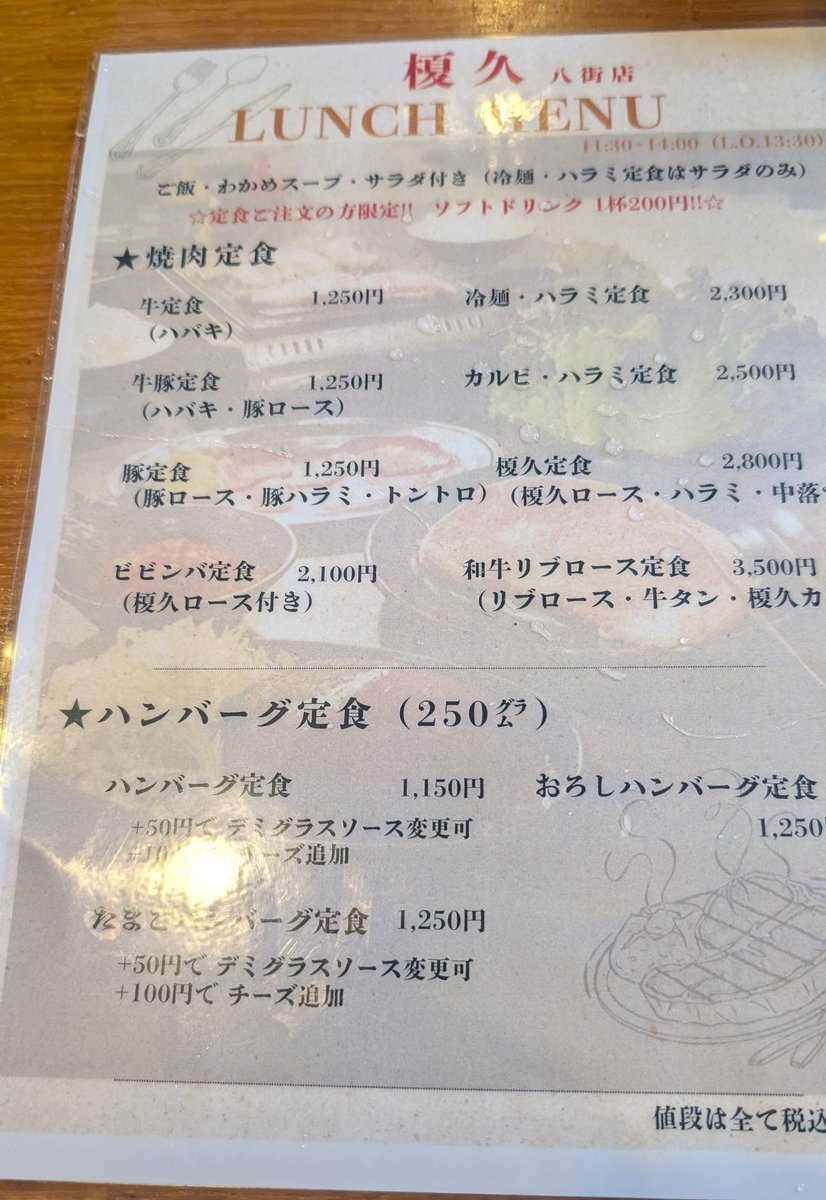 榎久 八街店
LUNCH MENU
11:30~14:00 (L.O.13:30)
ご飯・わかめスープ・サラダ付き (冷麺・ハラミ定食はサラダのみ)
☆定食ご注文の方限定!! ソフトドリンク 1杯200円!!☆
★焼肉定食
牛定食 1,250円
(ハバキ)
冷麺・ハラミ定食 2,300円
牛豚定食 1,250円
(ハバキ・豚ロース)
カルビ・ハラミ定食 2,500円
豚定食 1,250円
(豚ロース・豚ハラミ・トントロ)
榎久定食 2,800円
(榎久ロース・ハラミ・中落
ビビンバ定食 2,100円
(榎久ロース付き)
和牛リブロース定食 3,500円
(リブロース・牛タン・榎久カ
★ハンバーグ定食 (250㌘)
ハンバーグ定食 1,150円
+50円で デミグラスソース変更可
チーズ追加
おろしハンバーグ定食
1,250
たまごハンバーグ定食 1,250円
+50円で デミグラスソース変更可
+100円で チーズ追加
値段は全て税込